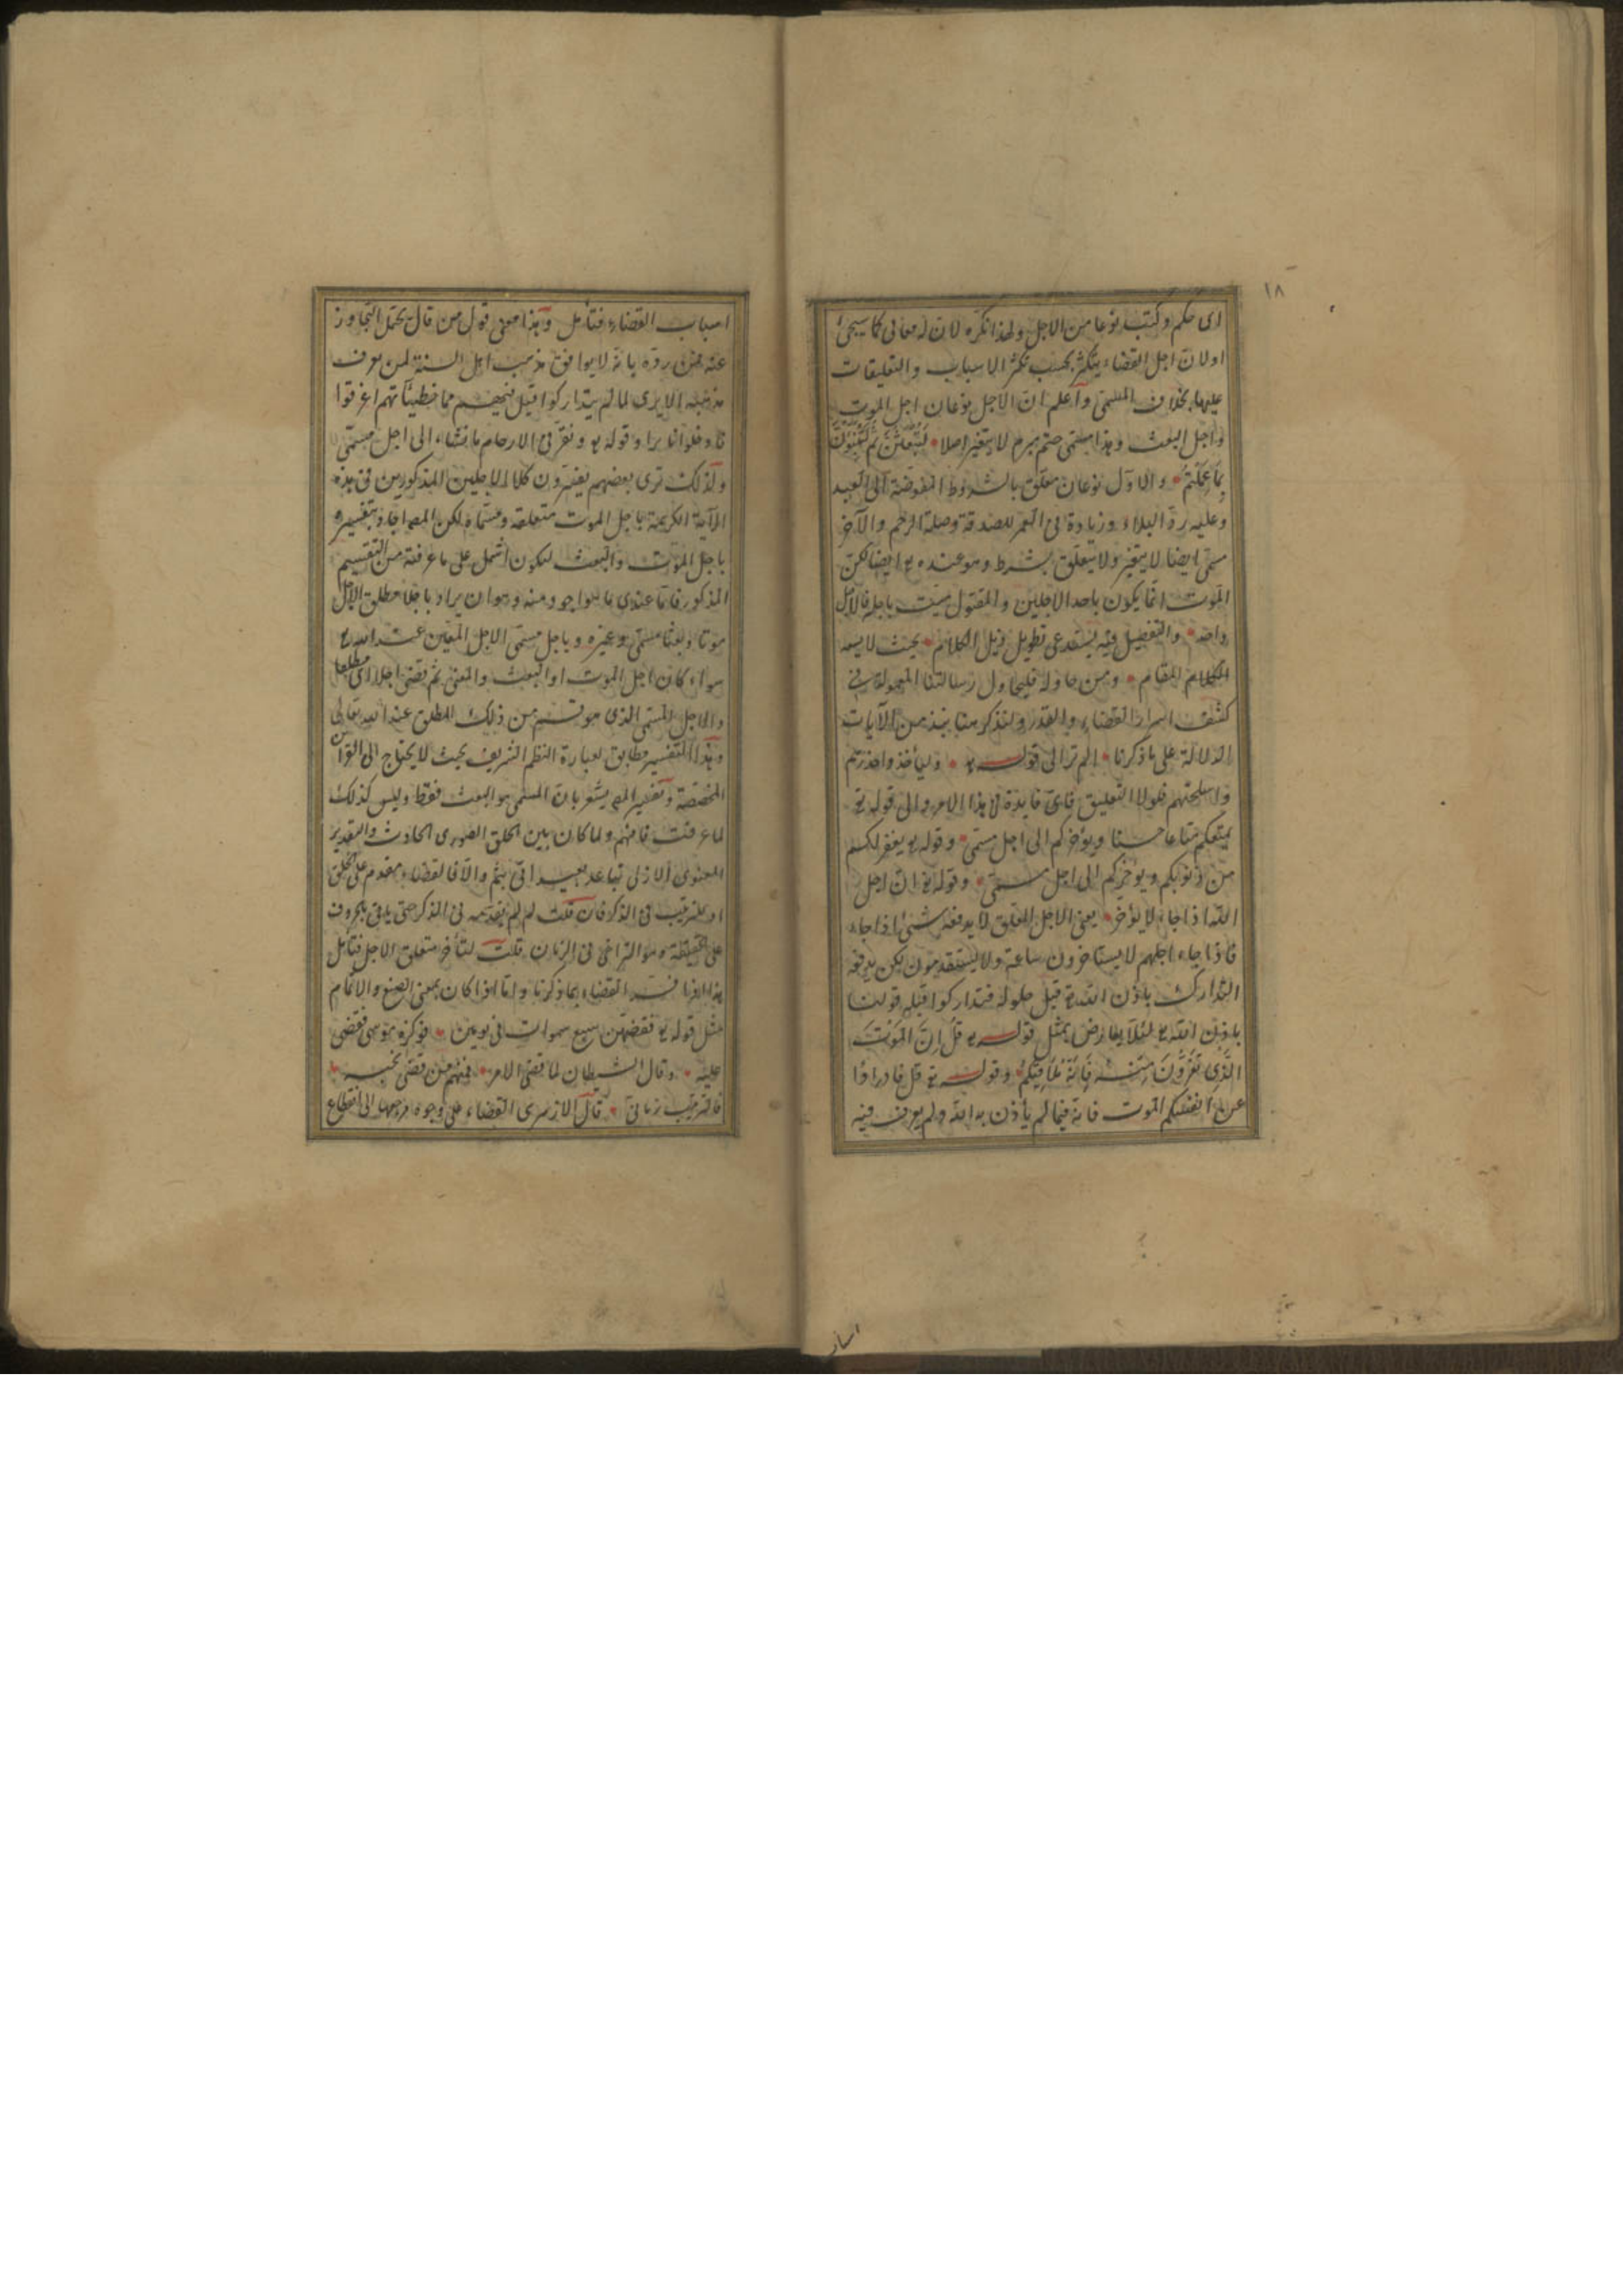 ١٨
اى حكم وكتب نوعا من الاجل ولهذا نكره لان له معانى كما سيجئ
اولان اجل القضاء يتكثر بحسب تكثر الاسباب والتعليقات
عليها بخلاف المسمى واعلم ان الاجل نوعان اجل الموت
واجل البعث وهذا مسمى حتم مبرم لا يتغير اصلا لتبعثن ثم لتنبؤن
بما عملتم والاول نوعان معلق بالشروط المفوضة الى العبد
وعليه رد البلاء وزيادة فى العمر للصدقة وصلة الرحم والآخر
مسمى ايضا لا يتغير ولا يتعلق بشرط وهو عنده تع ايضا لكن
الموت انما يكون باحد الاجلين والمقتول ميت باجله فالاجل
واحد والتفصيل فيه يستدعى تطويل ذيل الكلام بحيث لا يسعه
الكلام المقام ومن حاوله فليحاول رسالتنا المعمولة فى
كشف اسرار القضاء والقدر ولنذكر هنا نبذ من الآيات
الدلالة على ما ذكرنا الم تر الى قوله تع وليأخذوا حذرهم
واسلحتهم فلولا التعليق فاى فايدة لهذا الامر والى قوله تع
يمتعكم متاعا حسنا ويؤخركم الى اجل مسمى وقوله تع يغفر لكم
من ذنوبكم ويؤخركم الى اجل مسمى وقوله تع ان اجل
الله اذا جاء لا يؤخر يعنى الاجل المعلق لا يدفعه شئ اذا جاء
فاذا جاء اجلهم لا يستاخرون ساعة ولا يستقدمون لكن يدفعه
التدارك باذن الله تع قبل حلوله فتداركوا قبله قولنا
باذن الله تع لئلا يعارض بمثل قوله تع قل ان الموت
الذى تفرون منه فانه ملاقيكم وقوله تع قل فادراؤا
عن انفسكم الموت فانه فيما لم يأذن به الله ولم يعرف فيه
اسباب
اسباب القضاء فتأمل وهذا معنى قول من قال يحتمل التجاوز
عنه فمن رده بانه لا يوافق مذهب اهل السنة لمن يعرف
مذهبه الا يرى لما لم يتداركوا قبل فيهم مما خطيئاتهم اغرقوا
فادخلوا نارا وقوله تع ونقر فى الارحام ما نشاء الى اجل مسمى
ولذلك ترى بعضهم يفسرون كلا الاجلين المذكورين فى هذه
الآية الكريمة باجل الموت متعلقه ومسماه لكن المص اجاد بتفسيره
باجل الموت والبعث ليكون اشمل على ما عرفته من التقسيم
المذكور فاما عندى ما هو اجود منه وهو ان يراد باجلا مطلق الاجل
موتا وبعثا مسمى وغيره وباجل مسمى الاجل المعين عند الله تع
سواء كان اجل الموت او البعث والمعنى ثم قضى اجلا اى مطلقا
والاجل المسمى الذى هو قسم من ذلك المطلق عند الله تعالى
وهذا التفسير مطابق لعبارة النظم الشريف بحيث لا يحتاج الى القرائن
المخصصة وتفسير المص يشعر بان المسمى هو البعث فقط وليس كذلك
لما عرفت فافهم ولما كان بين الخلق الصورى الحادث والتقدير
المعنوى الازلى تباعد بعيد اتى بثم والا فالقضاء مقدم على الخلق
او للترتيب فى الذكر فان قلت لم لم يقدمه فى الذكر حتى يلاقى بالحروف
على الحقيقة وهو التراخى فى الزمان قلت لتأخر متعلق الاجل فتأمل
هذا اذا فسر القضاء بما ذكرنا واما اذا كان بمعنى الصنع والاتمام
مثل قوله تع فقضيهن سبع سموات فى يومين فوكزه موسى فقضى
عليه وقال الشيطان لما قضى الامر فمنهم من قضى نحبه
فالترتيب زمانى قال الازهرى القضاء على وجوه مرجعها الى انقطاع